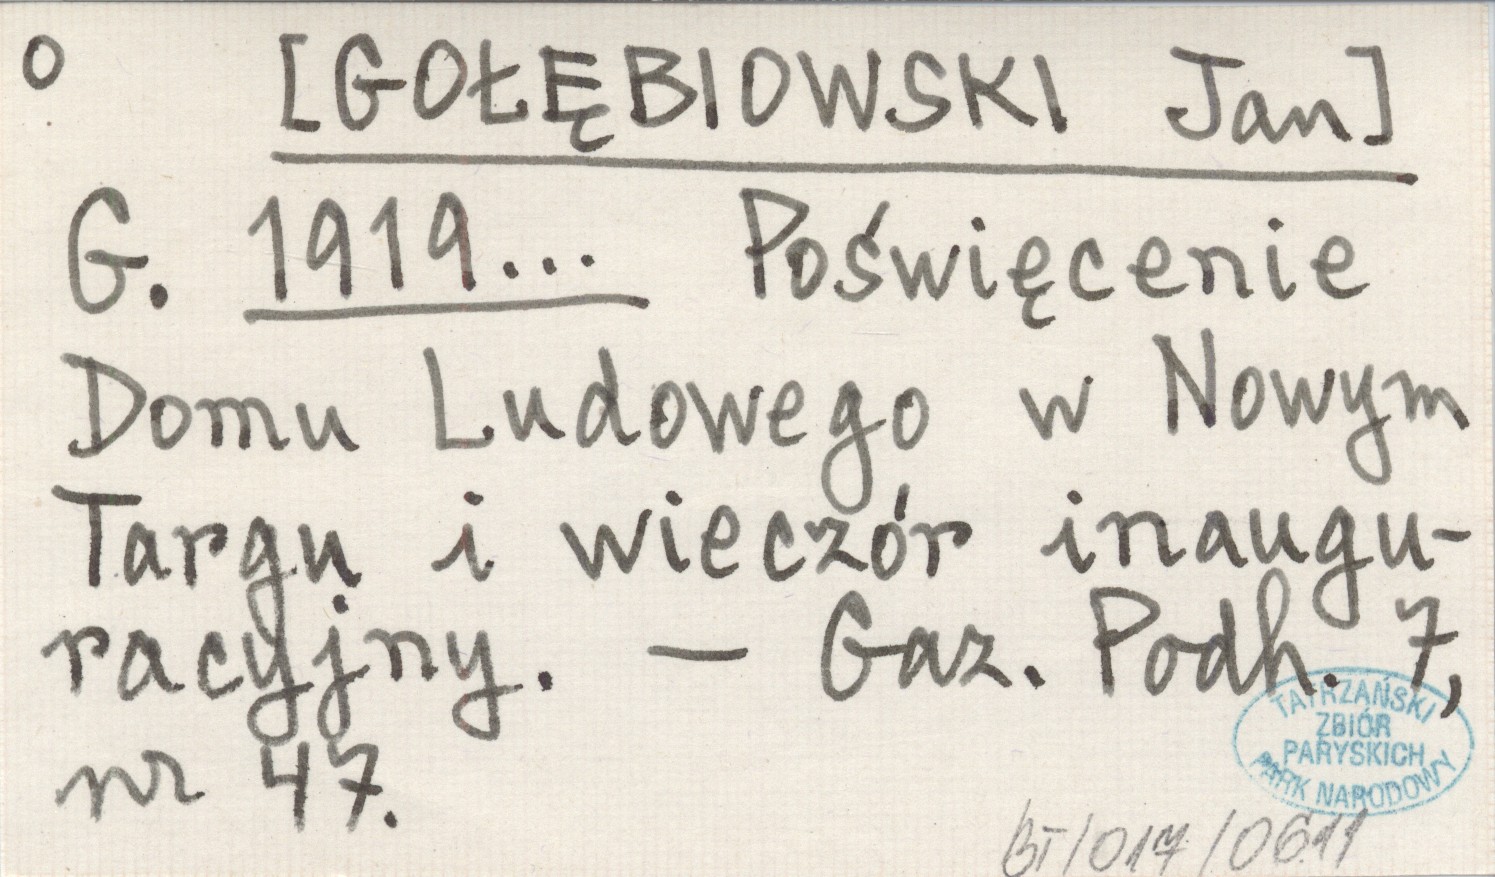 o [GOŁĘBIOWSKI Jan]
G. 1919... Poświęcenie
Domu Ludowego w Nowym
Targu i wieczór inaugu-
racyjny. — Gaz. Podh. 7,
nr 47.
TATRZAŃSKI
ZBIÓR
PARYSKICH
PARK NARODOWY
BT/017/0611